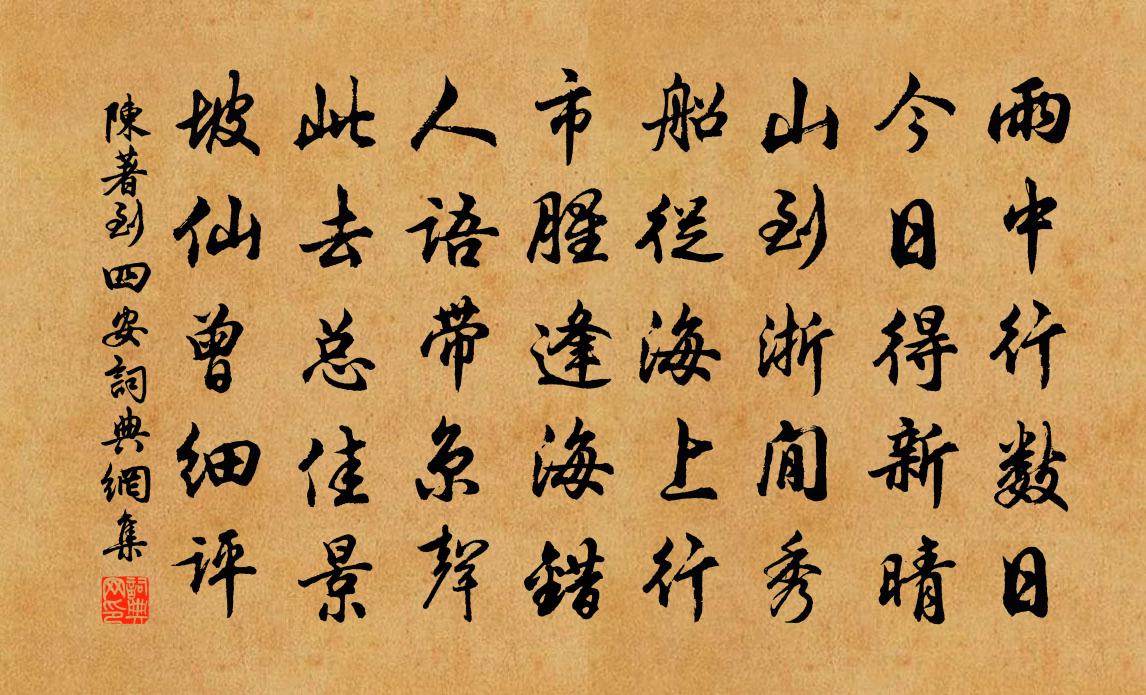 雨中行数日
今日得新晴
山到浙間秀
船從海上行
市腥逢海錯
人語帶京聲
此去总佳景
坡仙曾细评
陳著到四安詞典網集
詞典网印